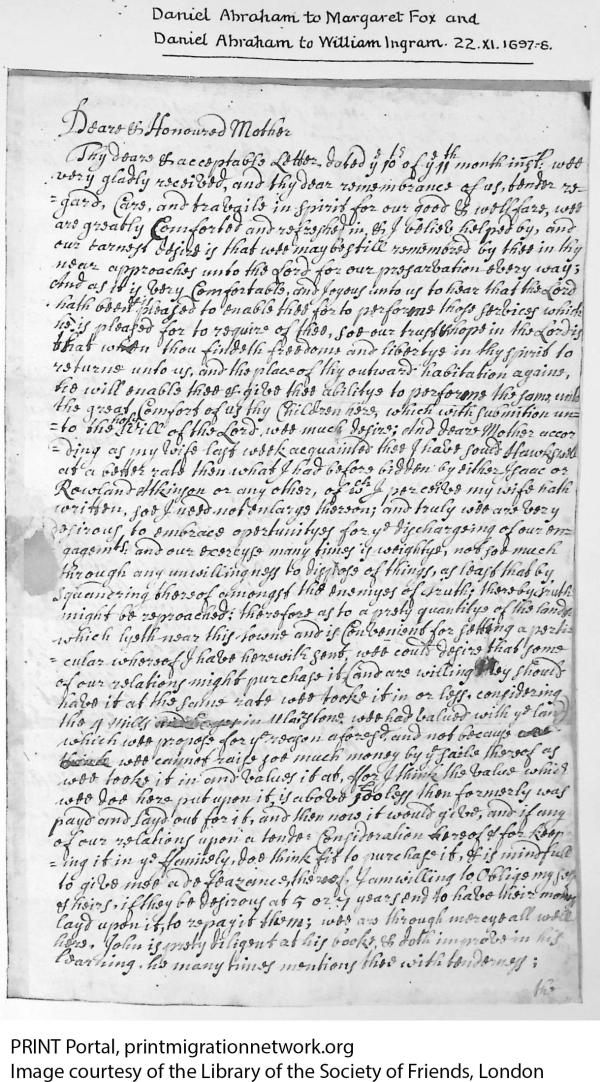 Daniel Abraham to Margaret Fox and
Daniel Abraham to William Ingram. 22.XI.1697-8.
Deare & Honoured Mother
Thy deare & acceptable Letter, dated ye 10th of ye 11th month inst. wee
very gladly received, and thy dear remembrance of us, tender re-
=gard, Care, and travaile in spirit for our good & wellfare, wee
are greatly Comforted and refreshed in, & I believe helped by, and
our earnest desire is that wee may be still remembered by thee in thy
near approaches unto the Lord for our preservation every way;
And as it is very Comfortable, and Joyous unto us to hear that the Lord
hath been pleased to enable thee for to performe those services which
he is pleased for to require of thee, soe our trust & hope in the Lord is
that when thou findeth freedome and libertye in thy spirit to
returne unto us, and the place of thy outward habitation againe,
hee will enable thee & give thee abilitye to performe the same, unto
the great Comfort of us thy Children here, which with submition un-
=to the holy Will of the Lord wee much desire; And deare Mother accor
=ding as my wife last week acquainted thee I have sould Hawkswell
at a better rate then what I had before bidden by either Isaac or
Rowland Atkinson or any other, of wch I perceive my wife hath
written, soe I need not enlarge thereon; and truly wee are very
desirous to embrace opertunityes for ye dischargeing of our en-
gagemts, and our exercyse many times is weightye, not soe much
through any unwillingness to dispose of things, as least that by
squandring thereof amongst the enemyes of truth, thereby truth
might be reproached; therefore as to a prety quantitye of the lands
which lyeth near this towne and is Convenient for setting a perti-
=cular whereof I have herewith sent, wee could desire that some
of our relations might purchase it (and are willing they should
have it at the same rate wee tooke it in or less, considering
the 4 Mills in Ulverstone wee had valued with ye land)
which wee propose for ye reason aforesd and not because
wee cannot raise soe much money by ye saile thereof as
wee tooke it in and values it at, for I think the value which
wee doe here put upon it, is above less then formerly was
payd and layd out for it, and then now it would give, and if any
of our relations upon a tender Consideration hereof & for keep
=ing it in ye Familly, doe think fit to purchase it, & is mindfull
to give mee a defeazance thereof, I am willing to Oblige my self
& heirs, if they be desirous at 5 or 7 years end to have their money
layd upon it, to repay it them; wee are through mercye all well
here, John is prety diligent at his booke, & doth improve in his
learning. he many times mentions thee with tenderness;
PRINT Portal, printmigrationnetwork.org
Image courtesy of the Library of the Society of Friends, London